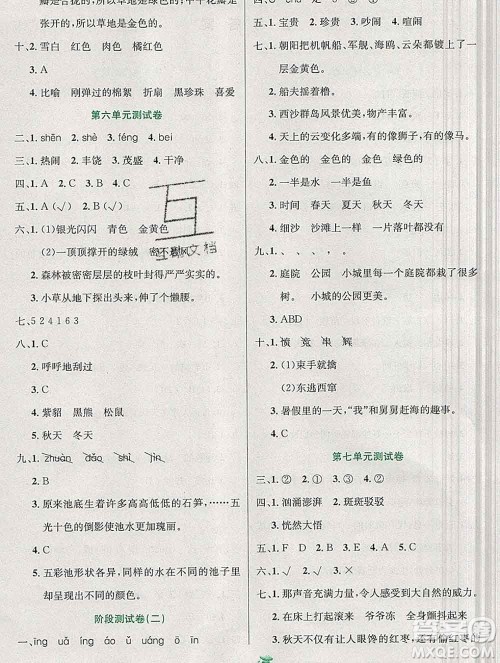 张开的。所以草地是金色的。
十、2. 雪白　红色　肉色　橘红色
3. A
4. 比喻　刚弹过的棉絮　折扇　黑珍珠　喜爱
第六单元测试卷
二、1. shēn　2. shè　3. féng　4. bei
三、1. 热闹　2. 丰饶　3. 茂盛　4. 干净
四、1. A　2. C　3. B　4. C
五、1. √　2.　3. √　4. √
六、1. (1)银光闪闪　青色　金黄色
(2)一顶顶撑开的绿绒　密不透风
2. 森林被密密层层的枝叶封得严严实实的。
3. 小草从地下探出头来，伸了个懒腰。
七、5 2 4 1 6 3
八、1. C
2. 呼呼地刮过
3. C
4. 紫貂　黑熊　松鼠
5. 秋天　冬天
九、1. zhuàn　dǎo　shí　jìn
2. C
3. 原来池底生着许多高高低低的石笋，…五
光十色的倒影使池水更加瑰丽。
4. C
5. 五彩池形状各异，同样的水在不同的池子里
却能显出不同的颜色。
阶段测试卷(二)
一、īng　uǎ　íng　áo　ǔ　uáng　ō　īn
六、1. 宝贵　2. 珍贵　3. 吵闹　4. 喧闹
七、1. 朝阳把机帆船、军舰、海鸥，云朵都镀成了
金黄色的。
2. 船夫摇着橹。
3. 西沙群岛风景优美，物产丰富。
4. 天上的云变化多端，有的像狮子，有的像马。
八、1. 金色的　金色　金色　绿色的
2. 一半是水　一半是鱼
3. 春天　夏天　秋天　冬天
4. 细雨如丝　一片片落叶都像蝴蝶
九、1. 、　，　，　。
2. 庭院　公园　小城里每一个庭院都栽了
很多树　小城的公园更美。
3. ABD
2. (1)束手就擒
(2)东逃西窜
3. 暑假里的一天，“我”和舅舅赶海的趣事。
4. C
第七单元测试卷
三、1. ②　2. ①　3. ③　4. ①
四、1. 汹涌澎湃　2. 斑斑驳驳
3. 恍然大悟
五、1. F　D　C　B　E　A
六、√　√
七、1. 那声音充满力量，仿佛想显示大自然的威力。
2. 爸爸　妈妈　爷爷　叔叔　都
3. 露珠在阳光的照射下闪烁着晶莹的光彩。
4. 秋天还有让人眼馋的红枣，一颗颗的红枣，